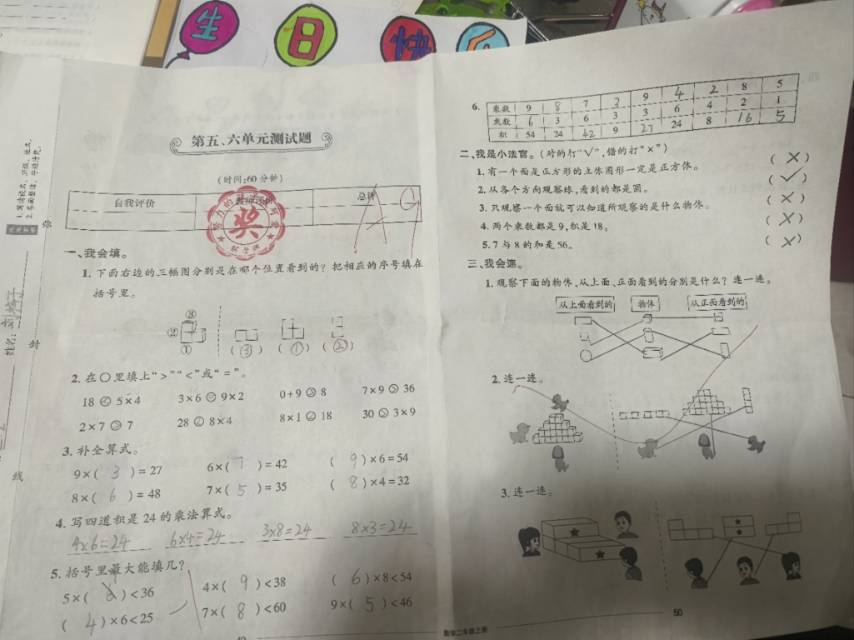 生日快
第五、六单元测试题
(时间:60分钟)
自我评价
总评
奖
A
一、我会填。
1. 下面右边的三幅图分别是在哪个位置看到的? 把相应的序号填在
括号里。
③
②
①
(③) (①) (②)
2. 在○里填上“>”“<”或“=”。
18 < 5×4 3×6 = 9×2 0+9 > 8 7×9 > 36
2×7 > 7 28 < 8×4 8×1 < 18 30 > 3×9
3. 补全算式。
9×( 3 )=27 6×( 7 )=42 ( 9 )×6=54
8×( 6 )=48 7×( 5 )=35 ( 8 )×4=32
4. 写四道积是24的乘法算式。
4×6=24 6×4=24 3×8=24 8×3=24
5. 括号里最大能填几?
5×( )<36 4×( 9 )<38 ( 6 )×8<54
( 4 )×6<25 7×( 8 )<60 9×( 5 )<46
6. 乘数 9 8 7 3 9 4 2 8 5
乘数 6 3 6 3 3 6 4 2 1
积 54 24 42 9 27 24 8 16 5
二、我是小法官。(对的打“√”,错的打“×”)
1. 有一个面是正方形的立体图形一定是正方体。 (×)
2. 从各个方向观察球,看到的都是圆。 (√)
3. 只观察一个面就可以知道所观察的是什么物体。 (×)
4. 两个乘数都是9,积是18。 (×)
5. 7与8的和是56。 (×)
三、我会连。
1. 观察下面的物体,从上面、正面看到的分别是什么? 连一连。
从上面看到的 物体 从正面看到的
2. 连一连。
3. 连一连。
50